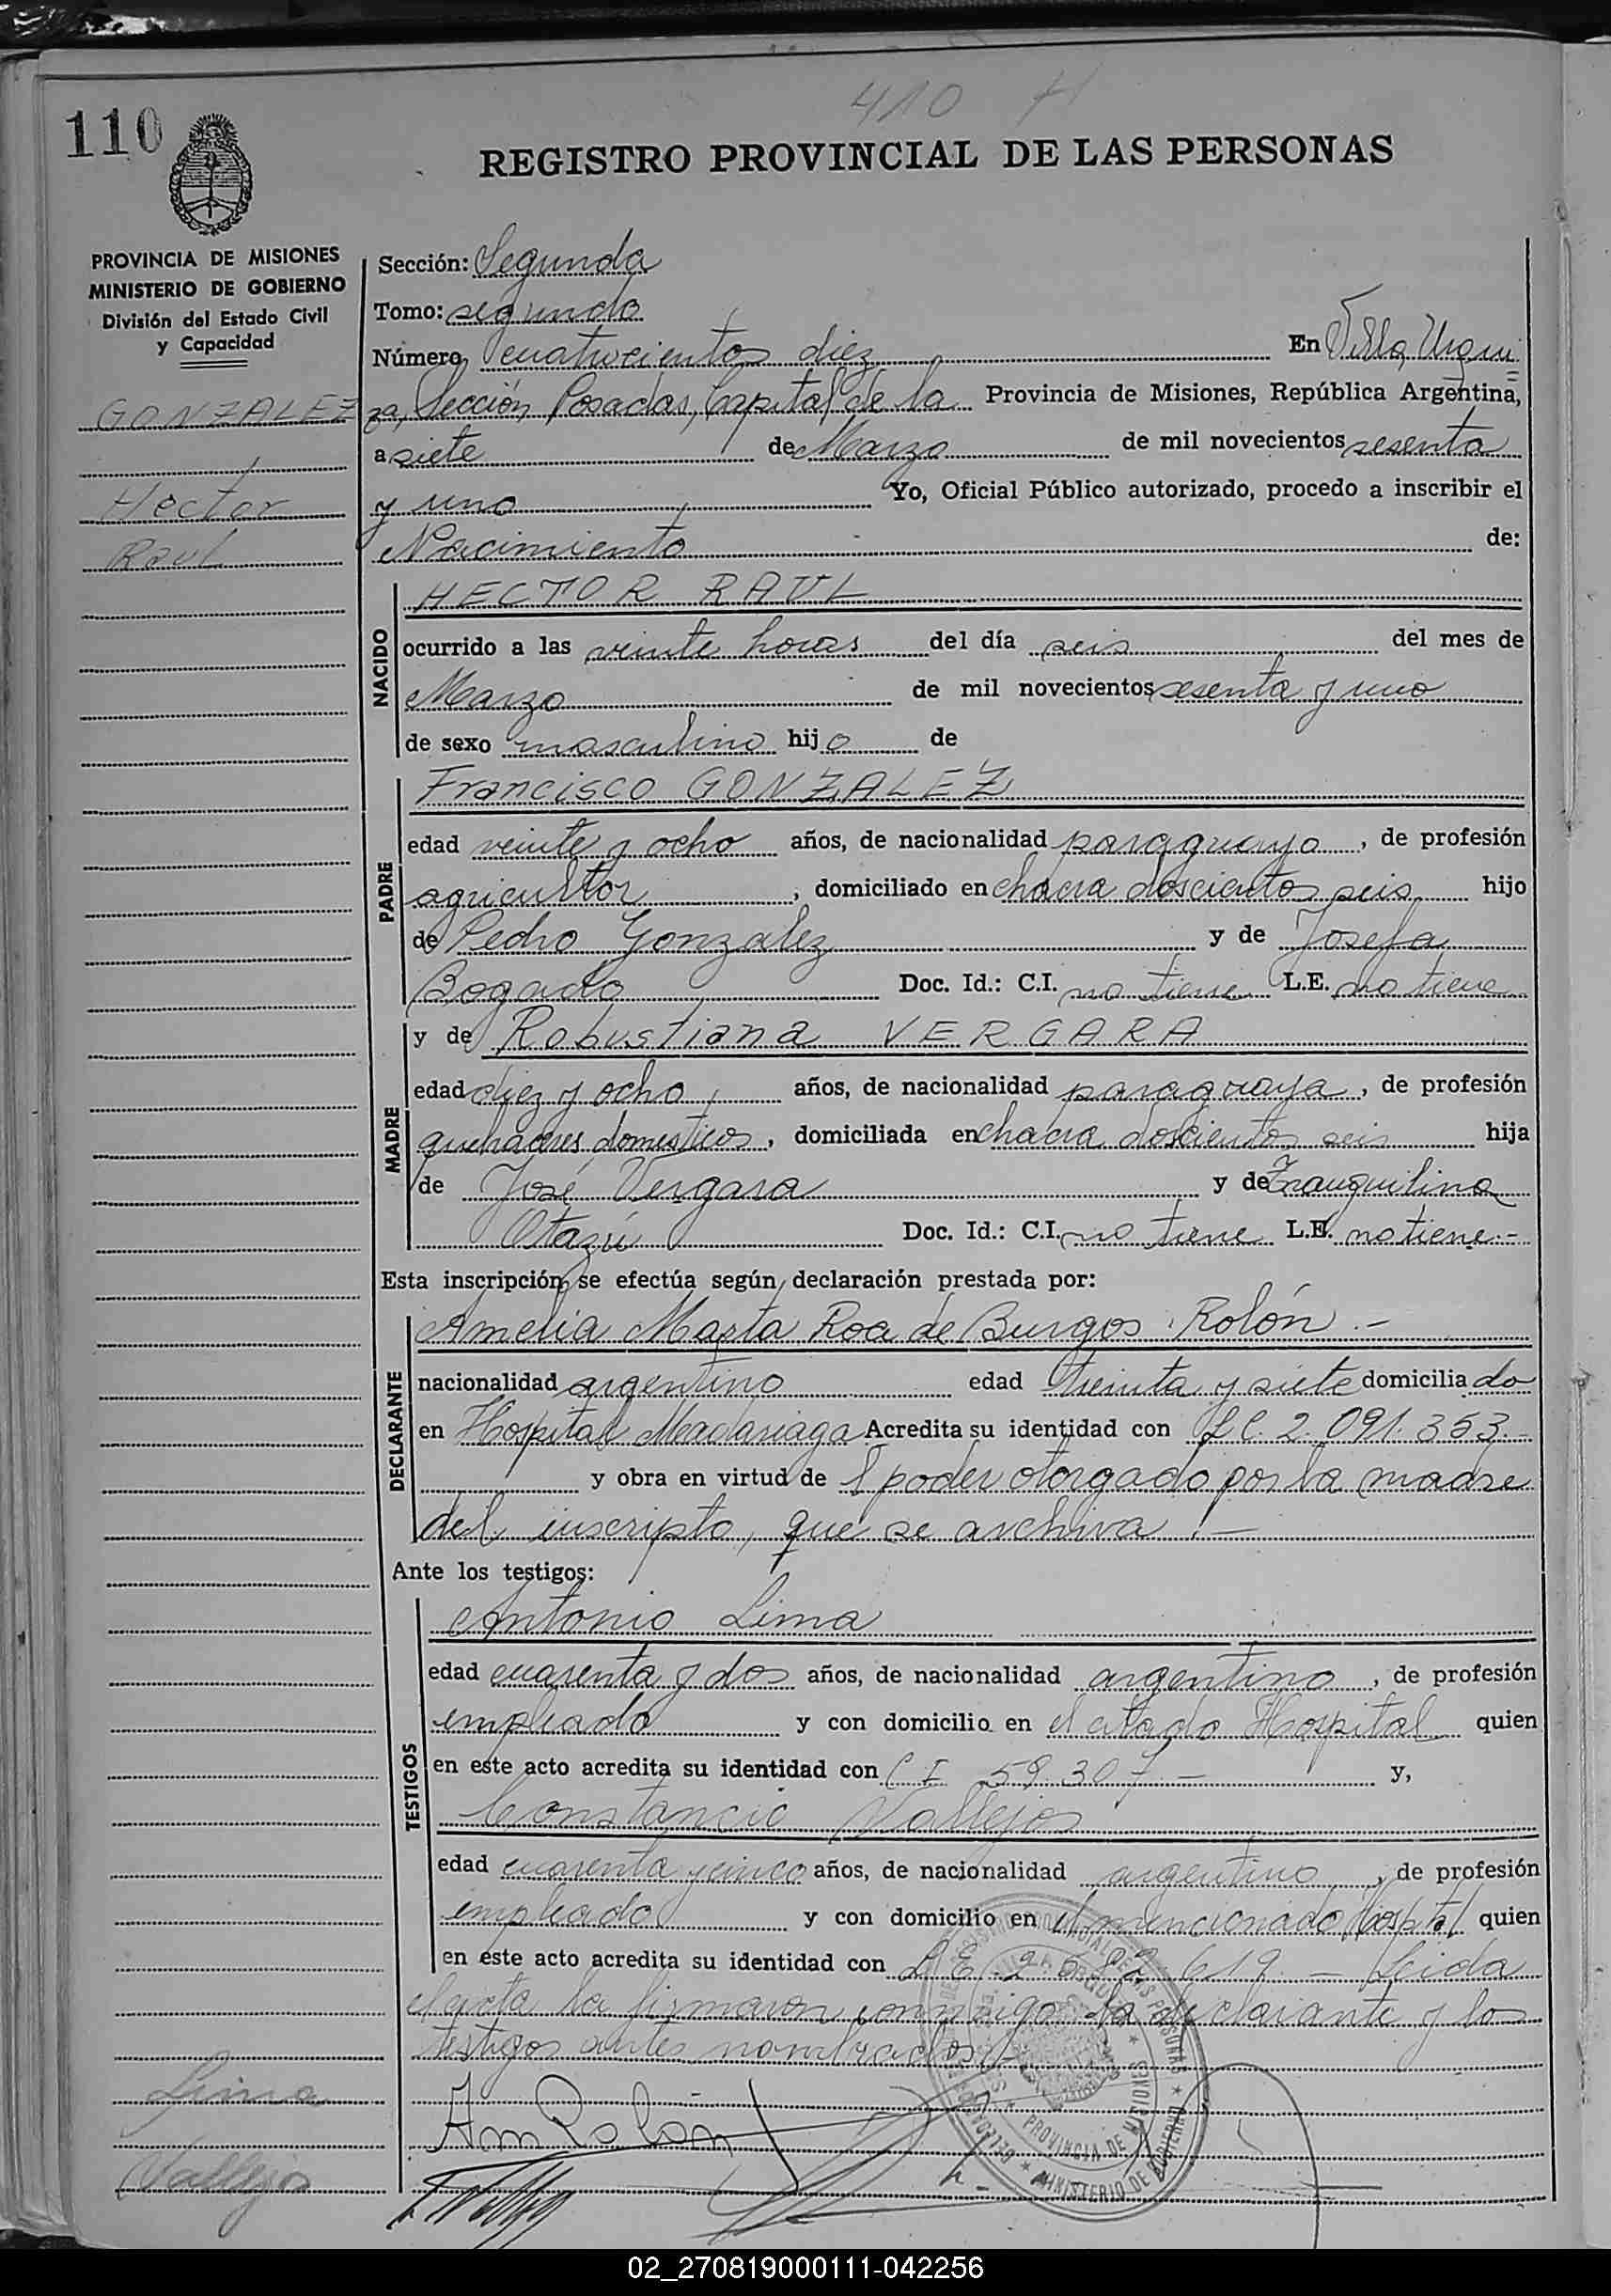 410 H
110
REGISTRO PROVINCIAL DE LAS PERSONAS
PROVINCIA DE MISIONES
MINISTERIO DE GOBIERNO
División del Estado Civil
y Capacidad
GONZALEZ
Hector
Raul
Sección: Segunda
Tomo: segundo
Número cuatrocientos diez En Villa Urqui=
za, Sección Posadas, Capital de la Provincia de Misiones, República Argentina,
a siete de Marzo de mil novecientos sesenta
y uno Yo, Oficial Público autorizado, procedo a inscribir el
Nacimiento de:
NACIDO
HECTOR RAUL
ocurrido a las veinte horas del día seis del mes de
Marzo de mil novecientos sesenta y uno
de sexo masculino hijo de
PADRE
Francisco GONZALEZ
edad veinte y ocho años, de nacionalidad paraguayo, de profesión
agricultor, domiciliado en chacra doscientos seis hijo
de Pedro Gonzalez y de Josefa
Bogado Doc. Id.: C.I. no tiene L.E. no tiene
MADRE
y de Robustiana VERGARA
edad diez y ocho, años, de nacionalidad paraguaya, de profesión
quehaceres domesticos, domiciliada en chacra doscientos seis hija
de José Vergara y de Tranquilina
Otazú Doc. Id.: C.I. no tiene L.E. no tiene.-
Esta inscripción se efectúa según declaración prestada por:
DECLARANTE
Amelia Marta Roa de Burgos Rolón.-
nacionalidad argentino edad treinta y siete domiciliado
en Hospital Madariaga Acredita su identidad con LC. 2.091.353.-
y obra en virtud de l poder otorgado por la madre
del inscripto, que se archiva.-
Ante los testigos:
TESTIGOS
Antonio Lima
edad cuarenta y dos años, de nacionalidad argentino, de profesión
empleado y con domicilio en el citado Hospital quien
en este acto acredita su identidad con C I 59.307.- y,
Constancio Vallejos
edad cuarenta y cinco años, de nacionalidad argentino, de profesión
empleado y con domicilio en el mencionado Hospital quien
en este acto acredita su identidad con LE. 2.682.619.- Leida
el acta la firmaron conmigo la declarante y los
testigos antes nombrados.-
Lima
Vallejo
Am Rolón
PROVINCIA DE MISIONES
MINISTERIO DE GOBIERNO
02_270819000111-042256